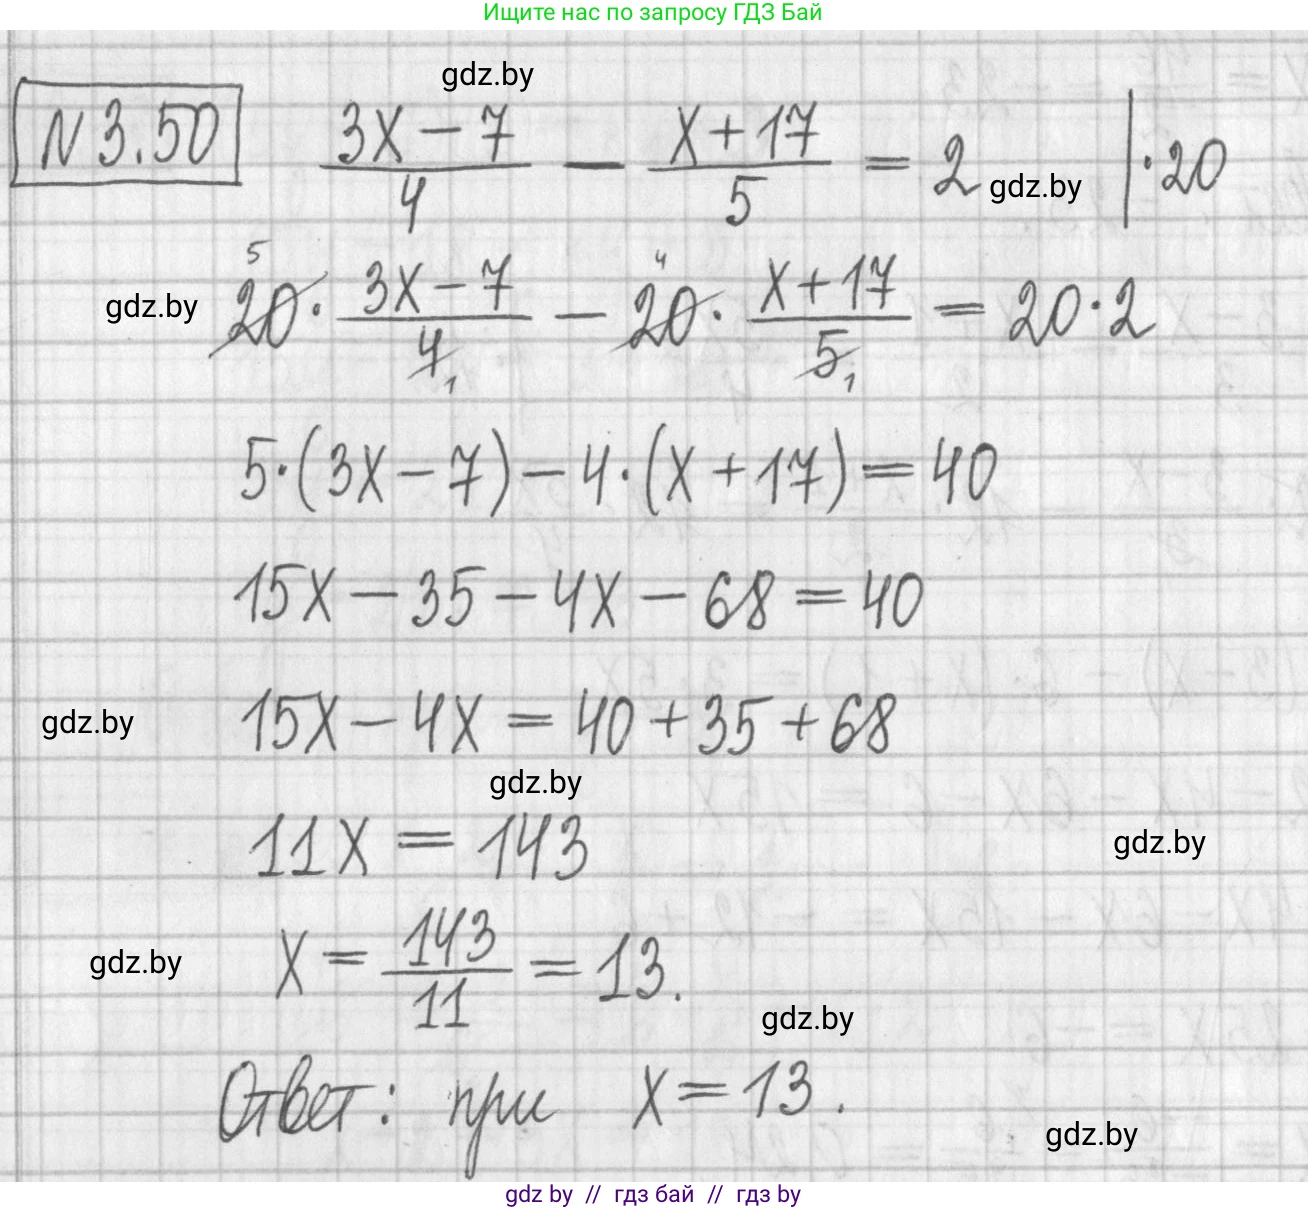 Ищите нас по запросу ГДЗ Бай
gdz.by
N 3.50 (3x - 7)/4 - (x + 17)/5 = 2 | ·20
gdz.by
gdz.by 20⁵ · (3x - 7)/4₁ - 20⁴ · (x + 17)/5₁ = 20 · 2
5 · (3x - 7) - 4 · (x + 17) = 40
15x - 35 - 4x - 68 = 40
gdz.by 15x - 4x = 40 + 35 + 68
gdz.by
11x = 143 gdz.by
gdz.by x = 143/11 = 13.
gdz.by
Ответ: при x = 13.
gdz.by
gdz by // гдз бай // гдз by